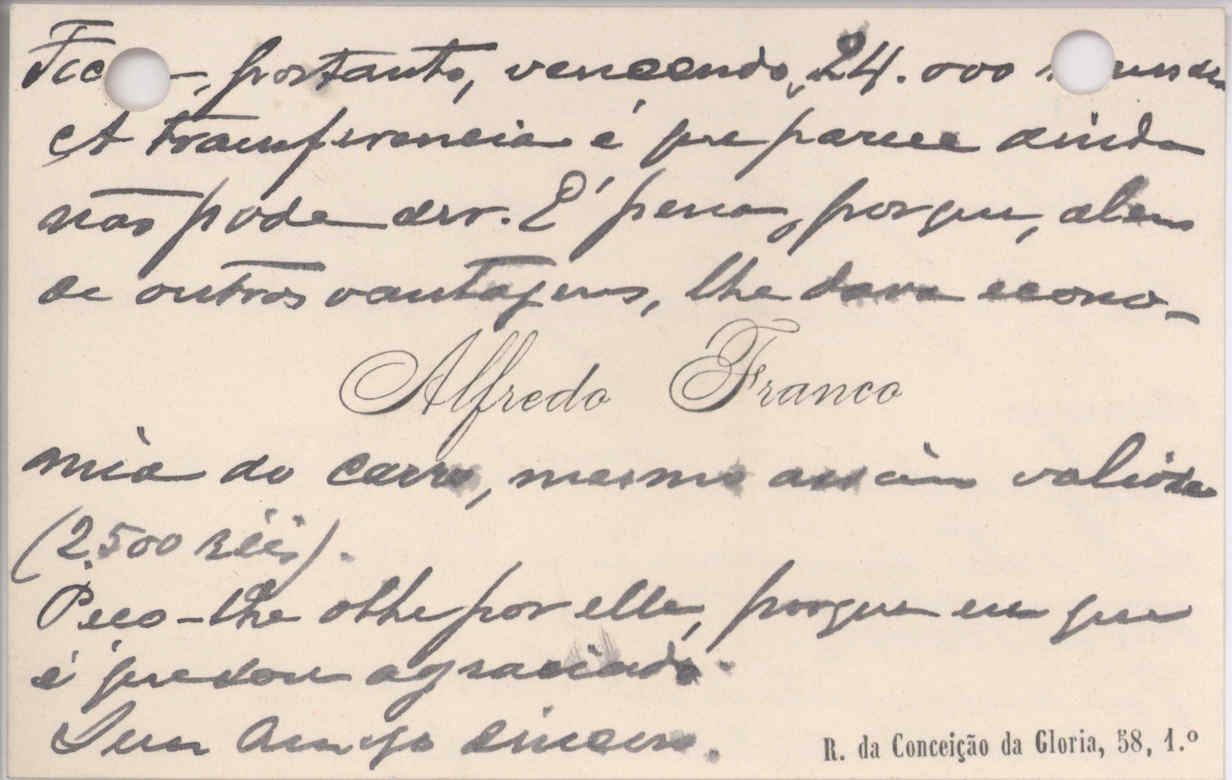 portanto, vencendo 24.000
A transferencia é que parece ainda
não pode ser. É pena, porque, alem
de outras vantagens, lhe dava econo-
Alfredo Franco
mia do carro, mesmo assim valiosa
(2.500 réis).
Peço-lhe olhe por elle, porque eu que
é que sou agraciado.
Seu Amigo sincero.
R. da Conceição da Gloria, 58, 1.º